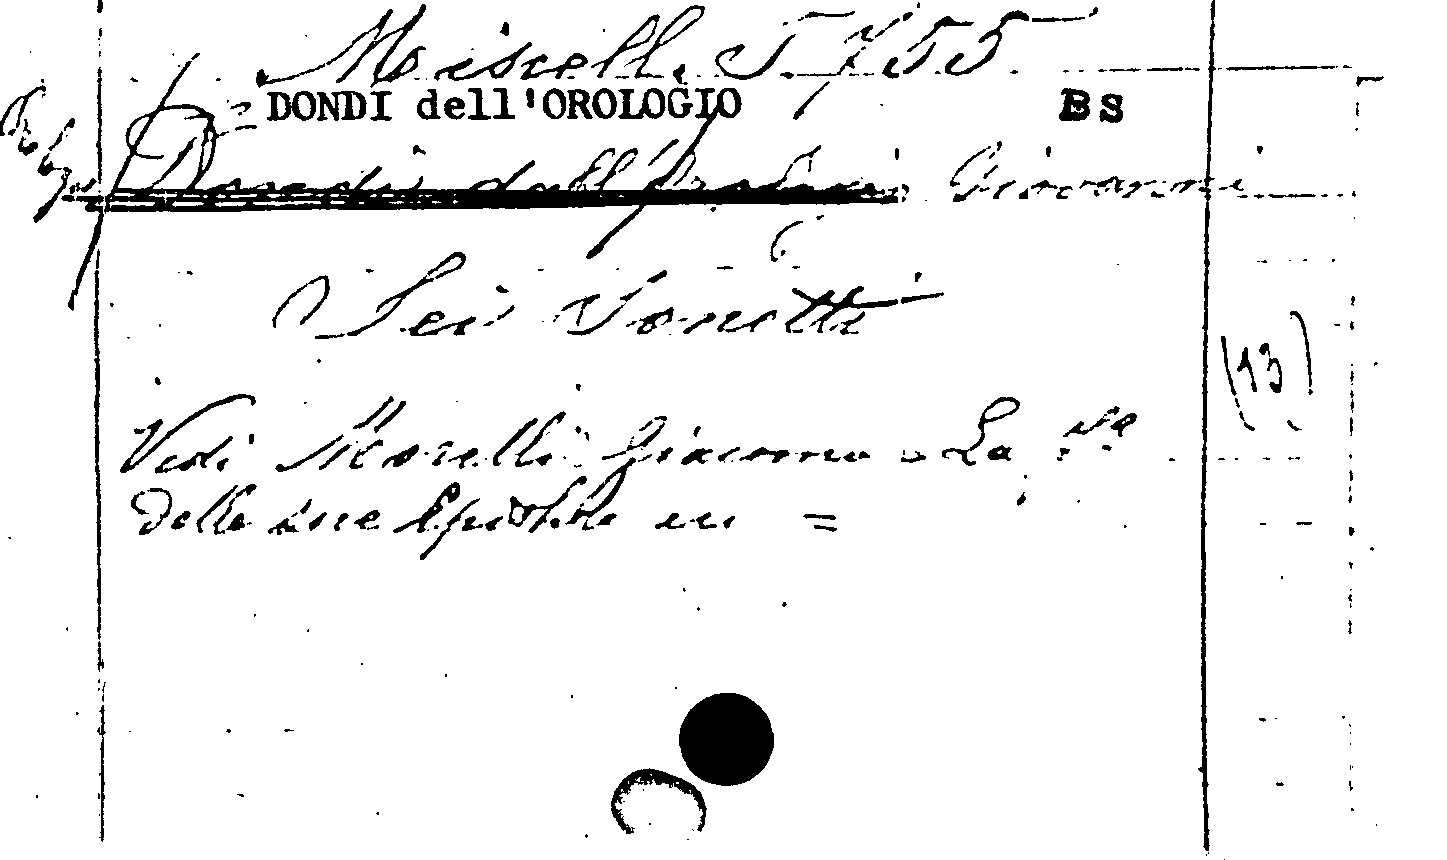 Miscell. 5755
DONDI dell'OROLOGIO BS
Dondi dall'Orologio Giovanni
Sei Sonetti
(13)
Vedi Morelli Giacomo = La Va
delle sue Epistole in =